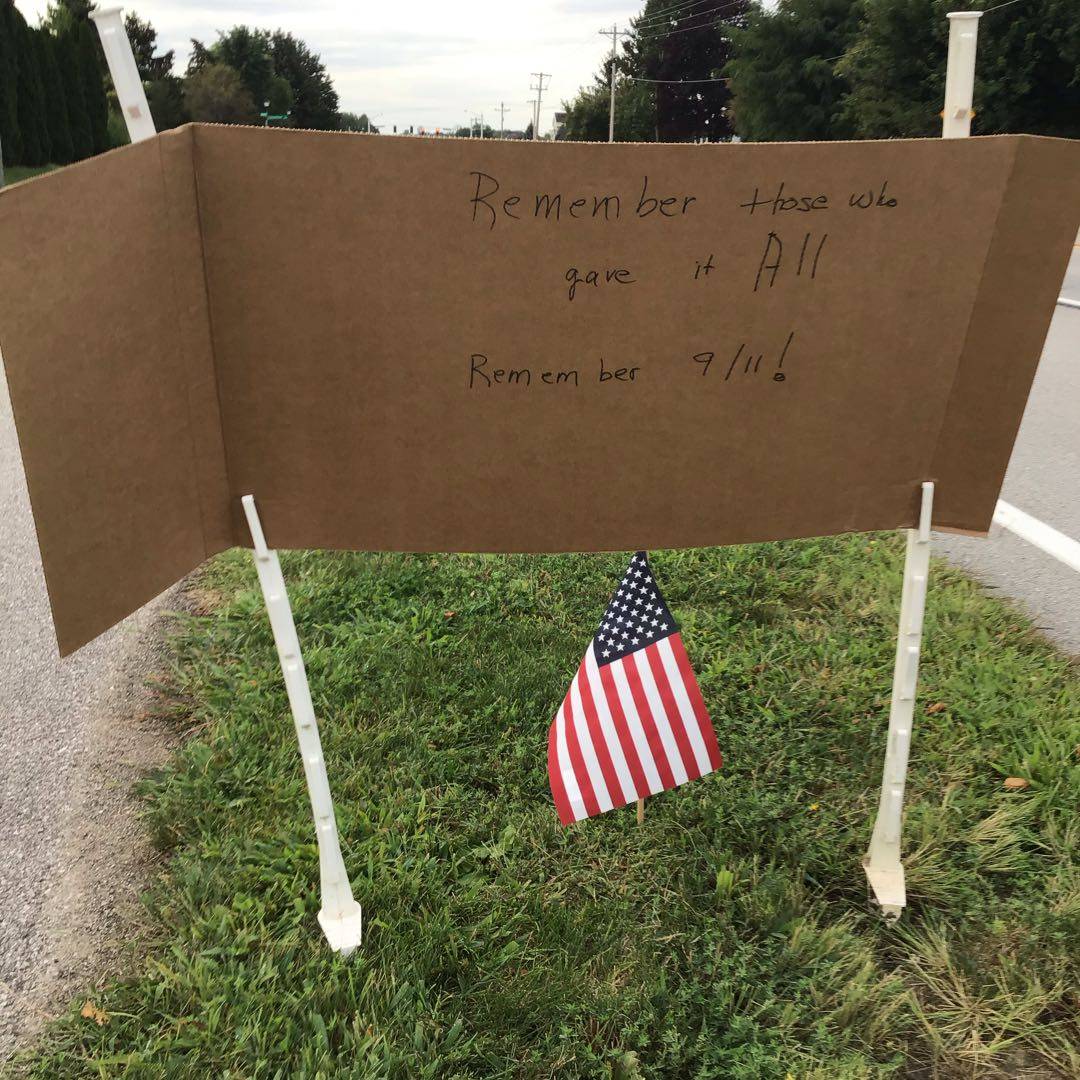 Remember those who
gave it All
Remember 9/11!